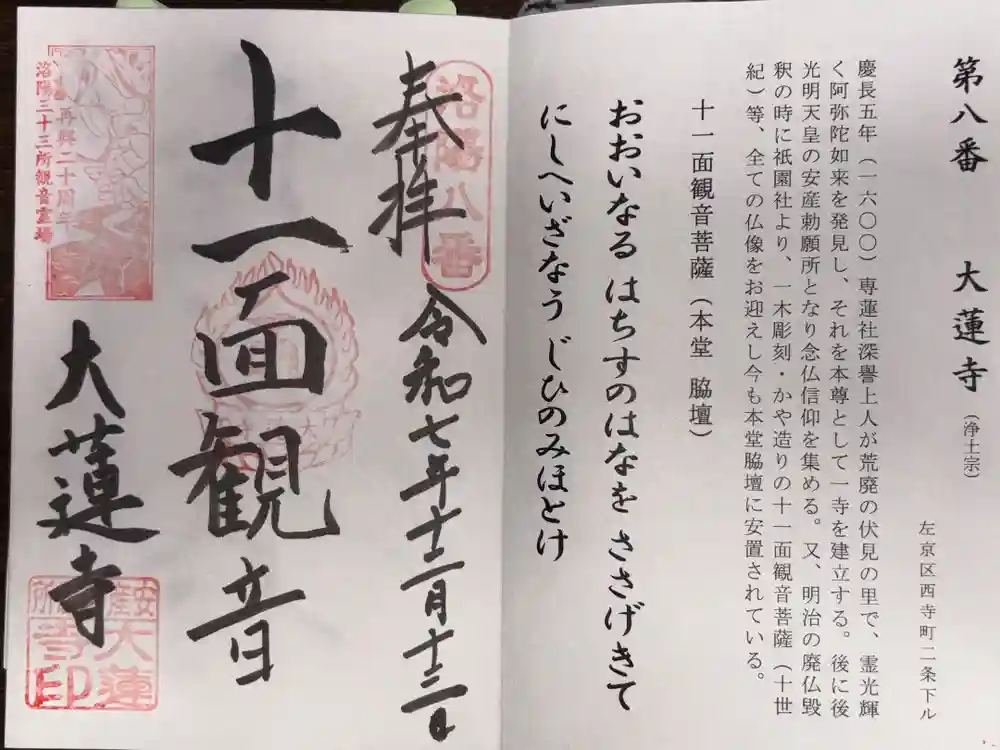 第八番　大蓮寺（浄土宗）
左京区西寺町二条下ル
慶長五年（一六〇〇）専蓮社深誉上人が荒廃の伏見の里で、霊光輝
く阿弥陀如来を発見し、それを本尊として一寺を建立する。後に後
光明天皇の安産勅願所となり念仏信仰を集める。又、明治の廃仏毀
釈の時に祇園社より、一木彫刻・かや造りの十一面観音菩薩（十世
紀）等、全ての仏像をお迎えし今も本堂脇壇に安置されている。
十一面観音菩薩（本堂　脇壇）
おおいなる はちすのはなを ささげきて
にしへいざなう じひのみほとけ
洛陽八番
奉拝
令和七年十二月十三日
十一面観音
大蓮寺
安産
所
大蓮
寺印
再興二十周年
洛陽三十三所観音霊場